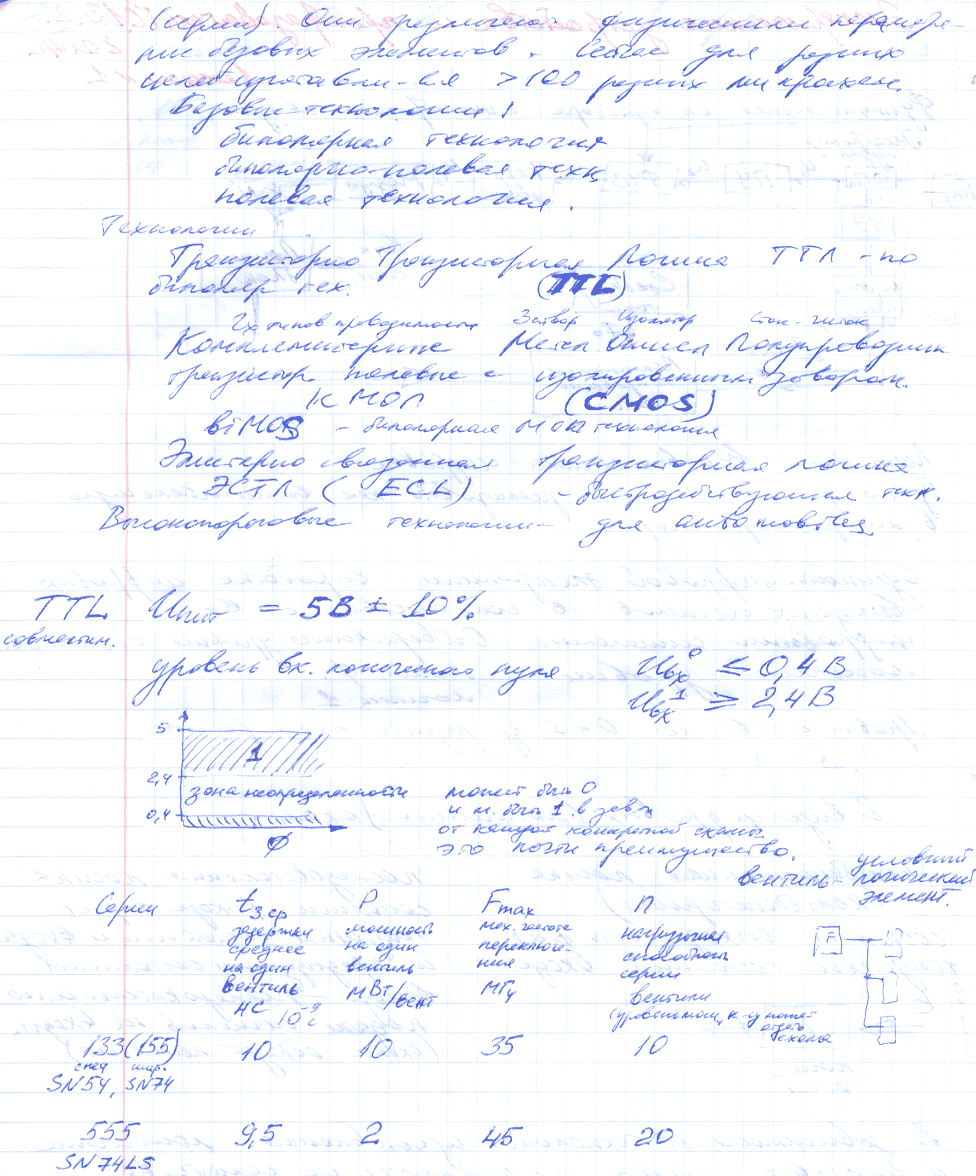 (серии) Они различают физическими параметра-
ми базовых элементов. Сейчас для разных
целей изготавли-ся >100 разных микросхем.
Базовые технологии!
биполярная технология
биполярно-полевая техн.
полевая технология.
Технологии
Транзисторно Транзисторная Логика ТТЛ - по
биполяр тех. (TTL)
2х типов проводимости Затвор Изолятор Сток-исток
Комплементарные Метал Окисел Полупроводник
транзистор полевые с изолированным затвором.
КМОП (CMOS)
BiMOS - биполярная МОП технология
Эмитерно связанная транзисторная логика
ЭСТЛ (ECL) - быстродействующая техн.
Высокопороговые технологии - для автоматики
TTL Uпит = 5В ± 10%
совместим.
уровень вх. логического нуля Uвх⁰ ≤ 0,4 В
Uвх¹ ≥ 2,4 В
5
1
2,4
зона неопределенности
0,4
Ø
может быть 0
и м. быть 1 в зав.
от каждой конкретной схемы
это почти преимущество.
вентиль - условный
логический
элемент.
Серии tз.ср P Fmax n
задержки мощность мах. частота нагрузочная
среднее на один переключе- способность
на один вентиль ния серии
вентиль мВт/вент МГц вентили
нс 10⁻⁹ с
(уровень мощ., к-ю может
отдать
схема
F
133(155) 10 10 35 10
спец шир.
SN54, SN74
555 9,5 2 45 20
SN74LS